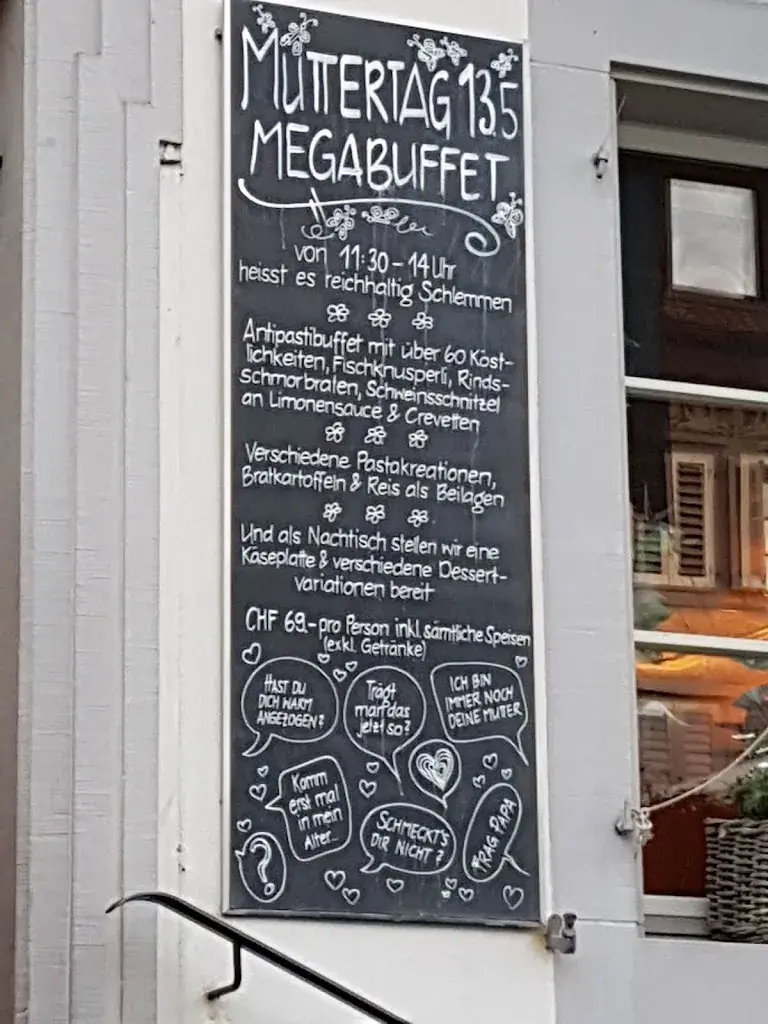 MUTTERTAG 13.5
MEGABUFFET
von 11:30 - 14 Uhr
heisst es reichhaltig Schlemmen
Antipastibuffet mit über 60 Köst-
lichkeiten, Fischknusperli, Rinds-
schmorbraten, Schweinsschnitzel
an Limonensauce & Crevetten
Verschiedene Pastakreationen,
Bratkartoffeln & Reis als Beilagen
Und als Nachtisch stellen wir eine
Käseplatte & verschiedene Dessert-
variationen bereit
CHF 69.- pro Person inkl. sämtliche Speisen
(exkl. Getränke)
HAST DU
DICH WARM
ANGEZOGEN?
Trägt
man das
jetzt so?
ICH BIN
IMMER NOCH
DEINE MUTTER
Komm
erst mal
in mein
Alter...
SCHMECKT'S
DIR NICHT?
FRAG PAPA
?